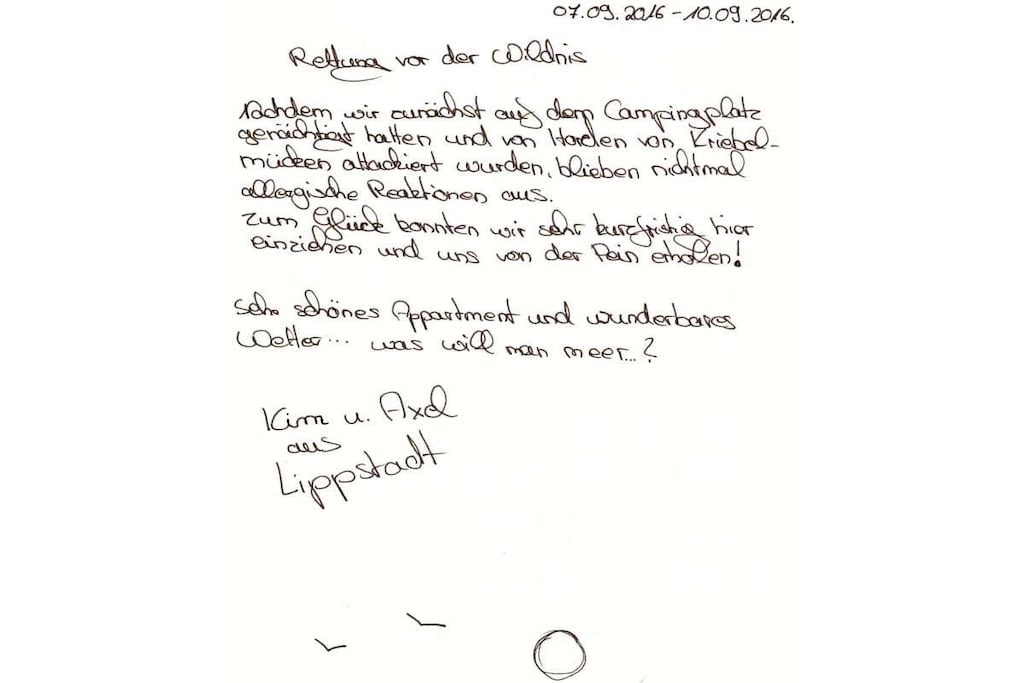 07.09.2016 - 10.09.2016.
Rettung vor der Wildnis
Nachdem wir zunächst auf dem Campingplatz
genächtigt hatten und von Horden von Kriebel-
mücken attackiert wurden, blieben nichtmal
allergische Reaktionen aus.
Zum Glück konnten wir sehr kurzfristig hier
einziehen und uns von der Pein erholen!
Sehr schönes Appartment und wunderbares
Wetter... was will man meer...?
Kim u. Axel
aus
Lippstadt